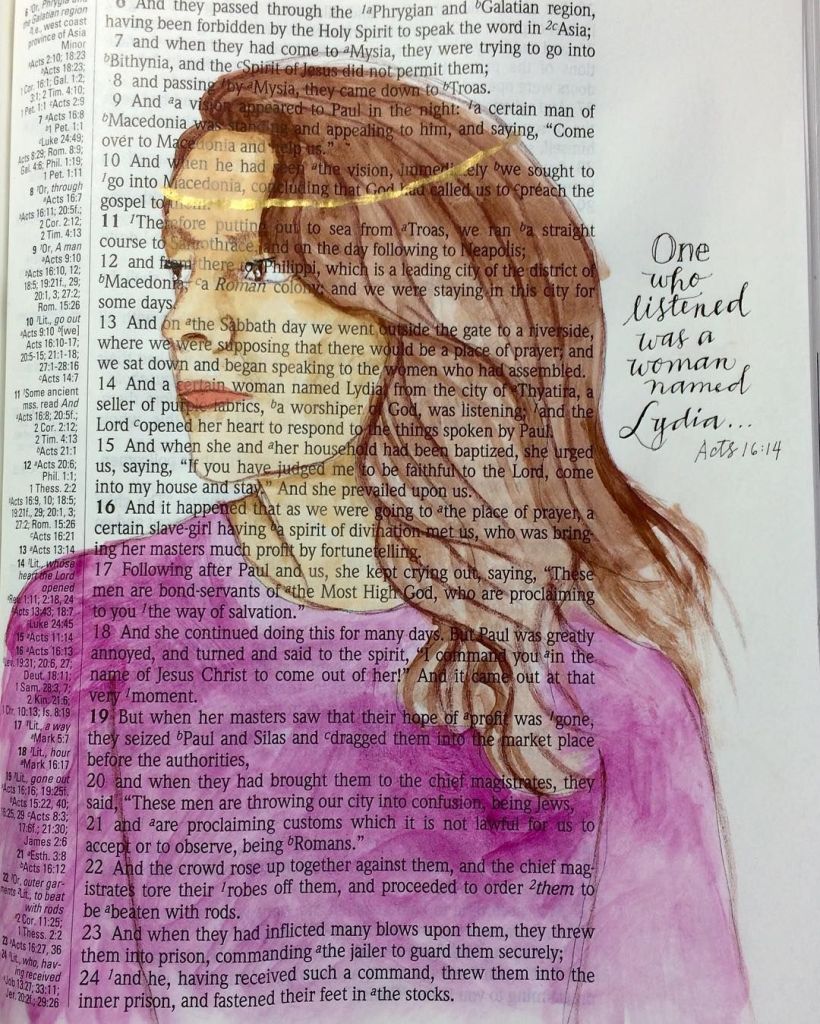 6 Or, Phrygia and
the Galatian region
i.e., west coast
province of Asia
Minor
Acts 2:10; 18:23
Acts 18:23;
1 Cor. 16:1; Gal. 1:2;
3:1; 2 Tim. 4:10;
1 Pet. 1:1 cActs 2:9
7 aActs 16:8
1 Pet. 1:1
Luke 24:49;
Acts 8:29; Rom. 8:9;
Gal. 4:6; Phil. 1:19;
1 Pet. 1:11
8 1Or, through
aActs 16:7
Acts 16:11; 20:5f.;
2 Cor. 2:12;
2 Tim. 4:13
9 1Or, A man
aActs 9:10
Acts 16:10, 12;
18:5; 19:21f., 29;
20:1, 3; 27:2;
Rom. 15:26
10 1Lit., go out
aActs 9:10 b[we]
Acts 16:10-17;
20:5-15; 21:1-18;
27:1-28:16
cActs 14:7
11 1Some ancient
mss. read And
Acts 16:8; 20:5f.;
2 Cor. 2:12;
2 Tim. 4:13
Acts 21:1
12 aActs 20:6;
Phil. 1:1;
1 Thess. 2:2
Acts 16:9, 10; 18:5;
19:21f., 29; 20:1, 3;
27:2; Rom. 15:26
Acts 16:21
13 aActs 13:14
14 1Lit., whose
heart the Lord
opened
Rev. 1:11; 2:18, 24
Acts 13:43; 18:7
Luke 24:45
15 aActs 11:14
16 aActs 16:13
Lev. 19:31; 20:6, 27;
Deut. 18:11;
1 Sam. 28:3, 7;
2 Kin. 21:6;
1 Chr. 10:13; Is. 8:19
17 1Lit., a way
aMark 5:7
18 1Lit., hour
aMark 16:17
19 1Lit., gone out
Acts 16:16; 19:25f.
Acts 15:22, 40;
Acts 8:3;
17:6f.; 21:30;
James 2:6
21 aEsth. 3:8
bActs 16:12
22 1Or, outer gar-
ments 2Lit., to beat
with rods
2 Cor. 11:25;
1 Thess. 2:2
23 aActs 16:27, 36
24 1Lit., who, hav-
ing received
Job 13:27; 33:11;
Jer. 20:2f.; 29:26
6 And they passed through the 1aPhrygian and bGalatian region,
having been forbidden by the Holy Spirit to speak the word in 2cAsia;
7 and when they had come to aMysia, they were trying to go into
bBithynia, and the cSpirit of Jesus did not permit them;
8 and passing 1by aMysia, they came down to bTroas.
9 And aa vision appeared to Paul in the night: 1a certain man of
bMacedonia was standing and appealing to him, and saying, “Come
over to Macedonia and help us.”
10 And when he had seen athe vision, immediately bwe sought to
1go into Macedonia, concluding that God had called us to cpreach the
gospel to them.
11 1Therefore putting out to sea from aTroas, we ran ba straight
course to Samothrace, and on the day following to Neapolis;
12 and from there to aPhilippi, which is a leading city of the district of
bMacedonia, ca Roman colony; and we were staying in this city for
some days.
13 And on athe Sabbath day we went outside the gate to a riverside,
where we were supposing that there would be a place of prayer; and
we sat down and began speaking to the women who had assembled.
14 And a certain woman named Lydia, from the city of aThyatira, a
seller of purple fabrics, ba worshiper of God, was listening; 1and the
Lord copened her heart to respond to the things spoken by Paul.
15 And when she and aher household had been baptized, she urged
us, saying, “If you have judged me to be faithful to the Lord, come
into my house and stay.” And she prevailed upon us.
16 And it happened that as we were going to athe place of prayer, a
certain slave-girl having ba spirit of divination met us, who was bring-
ing her masters much profit by fortunetelling.
17 Following after Paul and us, she kept crying out, saying, “These
men are bond-servants of athe Most High God, who are proclaiming
to you 1the way of salvation.”
18 And she continued doing this for many days. But Paul was greatly
annoyed, and turned and said to the spirit, “I command you ain the
name of Jesus Christ to come out of her!” And it came out at that
very 1moment.
19 But when her masters saw that their hope of aprofit was 1gone,
they seized bPaul and Silas and cdragged them into the market place
before the authorities,
20 and when they had brought them to the chief magistrates, they
said, “These men are throwing our city into confusion, being Jews,
21 and aare proclaiming customs which it is not lawful for us to
accept or to observe, being bRomans.”
22 And the crowd rose up together against them, and the chief mag-
istrates tore their 1robes off them, and proceeded to order 2them to
be abeaten with rods.
23 And when they had inflicted many blows upon them, they threw
them into prison, commanding athe jailer to guard them securely;
24 1and he, having received such a command, threw them into the
inner prison, and fastened their feet in athe stocks.
One
who
listened
was a
woman
named
Lydia...
Acts 16:14